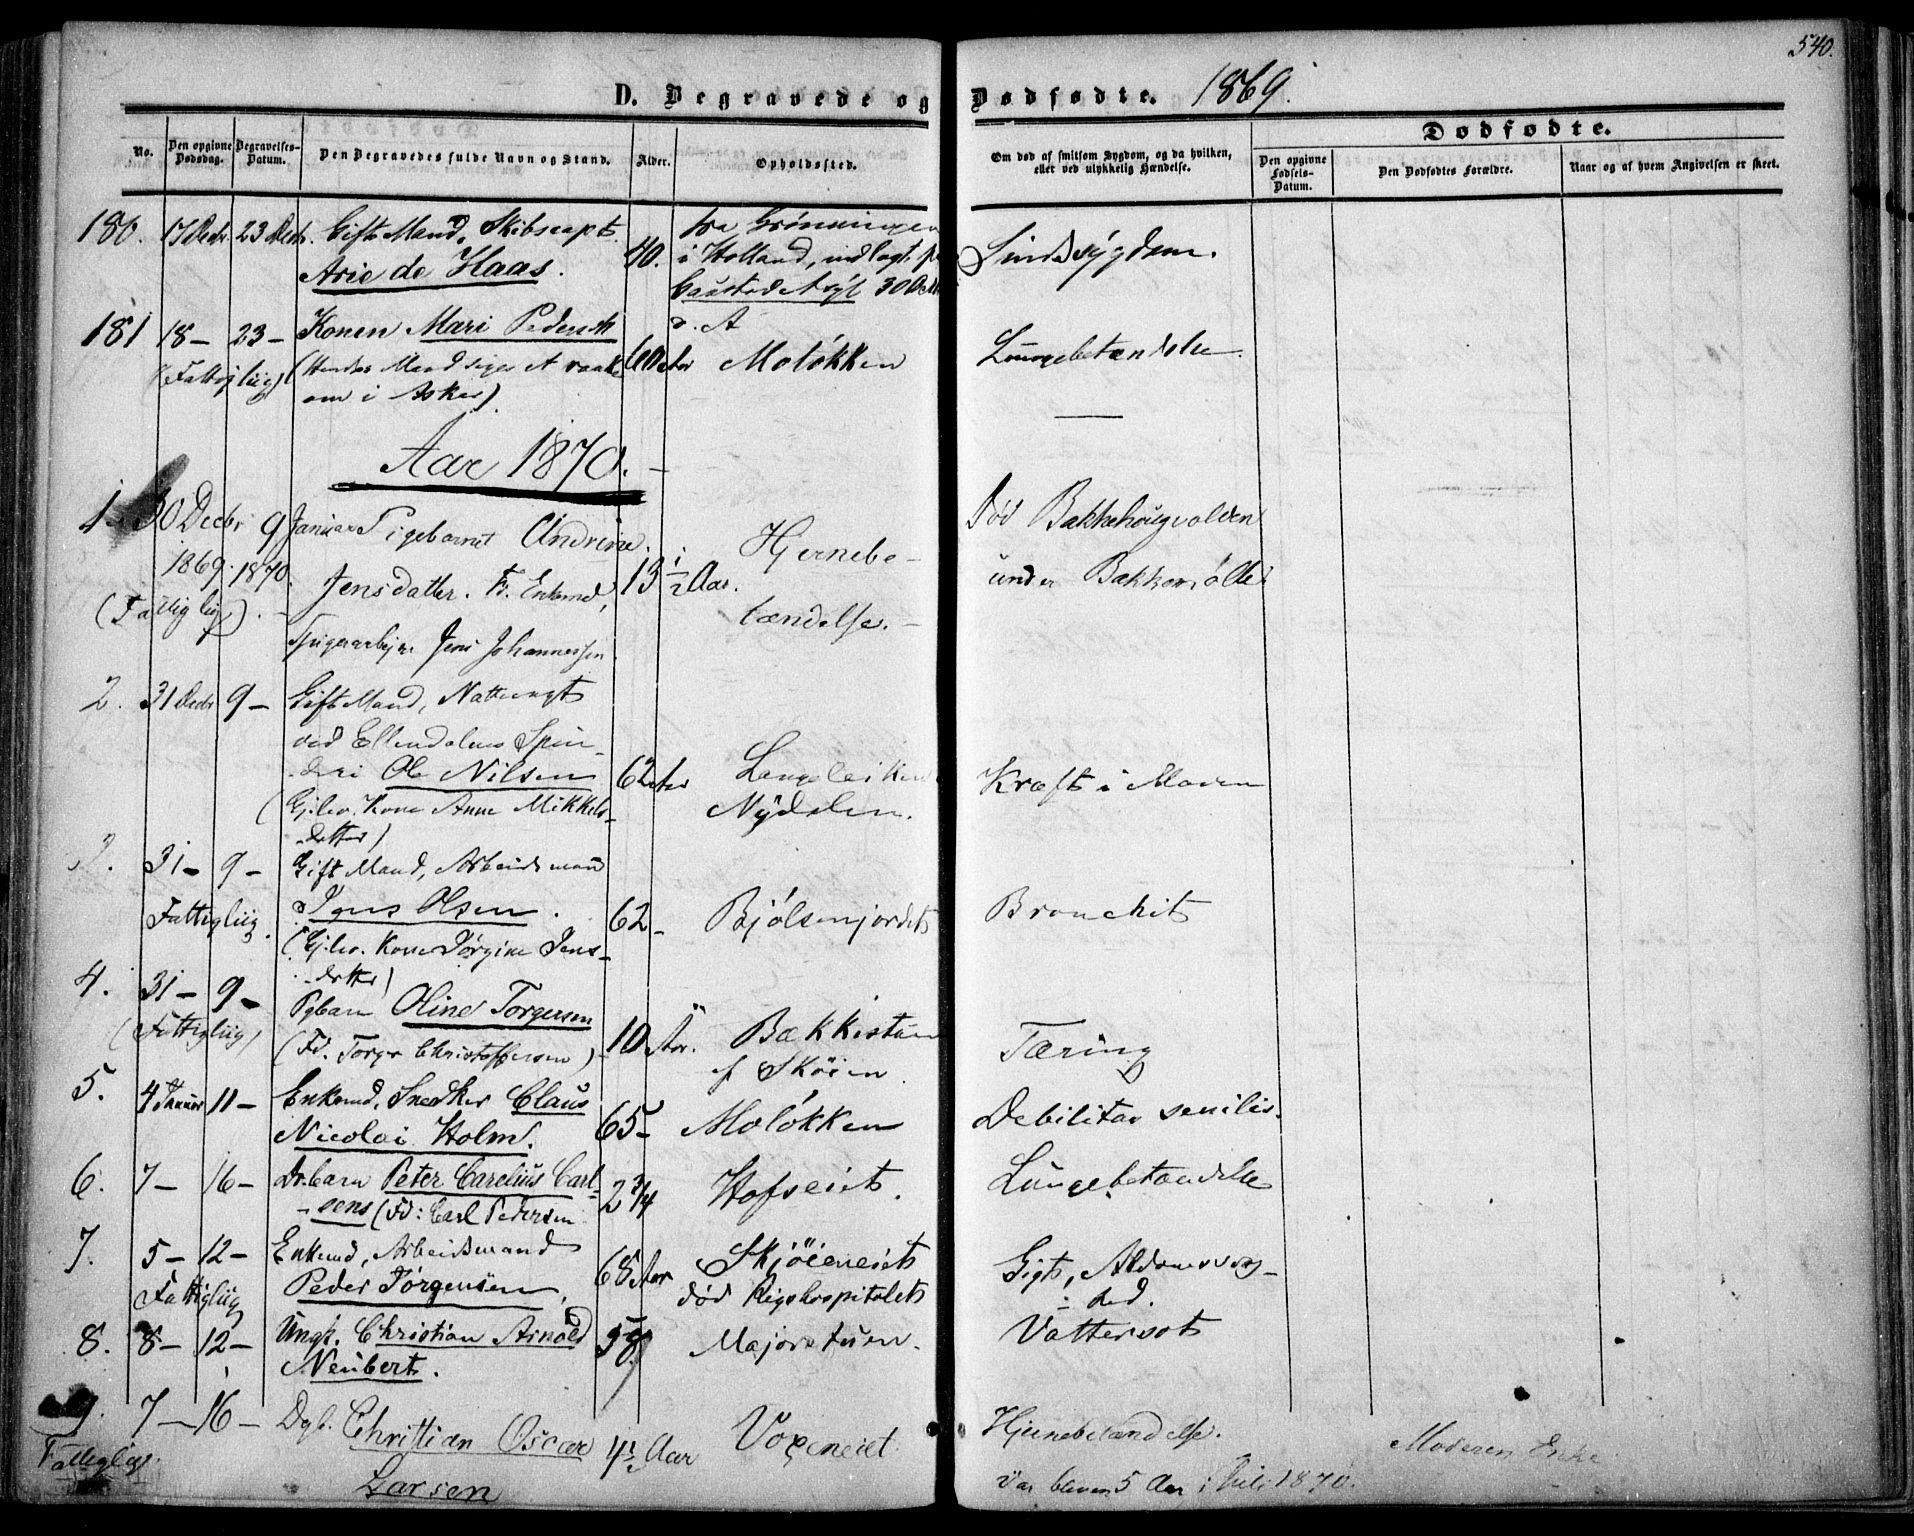 540.
D. Begravede og Dødfødte. 1869.
No.
Den opgivne Dødsdag.
Begravelses-Datum.
Den Begravedes fulde Navn og Stand.
Alder.
Opholdssted.
Om død af smitsom Sygdom, og da hvilken, eller ved ulykkelig Hændelse.
Dødfødte.
Den opgivne Fødsels-Datum.
Den Dødfødtes Forældre.
Naar og af hvem Angivelsen er skeet.
180. 17 Decbr. 23 Decbr. Gift Mand, Skibscapt. 40. fra Grønningen
Arie de Haas. i Holland, indlagt på Sindssygdom.
Gaustad Asyl 30
d. A
181 18 – 23 – Konen Mari Pedersen 60 Aar Moløkken Lungebetændelse.
(Fattiglig) (Hendes Mand siges at vanke
om i Asker)
Aar 1870.
1. 30 Decbr 9 Januar Pigebarnet Andrine Hjernebe- Død Bakkehougvolden
1869. 1870. Jensdatter. F. Enkemd, 13 1/2 Aar. tændelse. – under Bakken,
(Fattiglig). Spigerarbejder Jens Johannessen
2. 31 Decbr 9 – Gift Mand, Nattevagt
ved Ellendalens Spin-
deri Ole Nilsen 62 Aar Kræft i Maven
(Gjlev. Kone Anne Mikkels- Nydalen.
datter)
3. 31 – 9 – Gift Mand, Arbeidsmand
Fattigliig. Jens Olsen. 62 – Bjølsenjordet Bronchit
(Gjlev. Kone Jørgine Jens-
datter)
4. 31 – 9 – Pgbarn Oline Torgersen
(Fattigliig) (Fd. Torger Christoffersen) 10 Aar. Bakkistuen Tæring
u/ Skøien.
5. 4 Januar 11 – Enkemd, Snedker Claus
Nicolai Holm. 65 – Moløkken Debilitas senilis.
6. 7 – 16 – Drbarn Peter Carelius Carl-
sens (Fd: Carl Pedersen 2 3/4 Hofseiet. Lungebetændelse
7. 5 – 12 – Enkemd, Arbeidsmand Skjøieneiet Gigt, Alderdomssvag-
Fattigliig Peder Jørgensen, 68 Aar død Rigshospitalet hed.
8. 8 – 12 – Ungk. Christian Arnold 58 Majorstuen. Vattersot
Neubert.
9. 7 – 16 – Dgb. Christian Oscar 4 1/2 Aar Voxeneiet Hjernebetændelse. Moderen Enke
Fattiglig. Larsen Var bleven 5 Aar i Juli 1870.